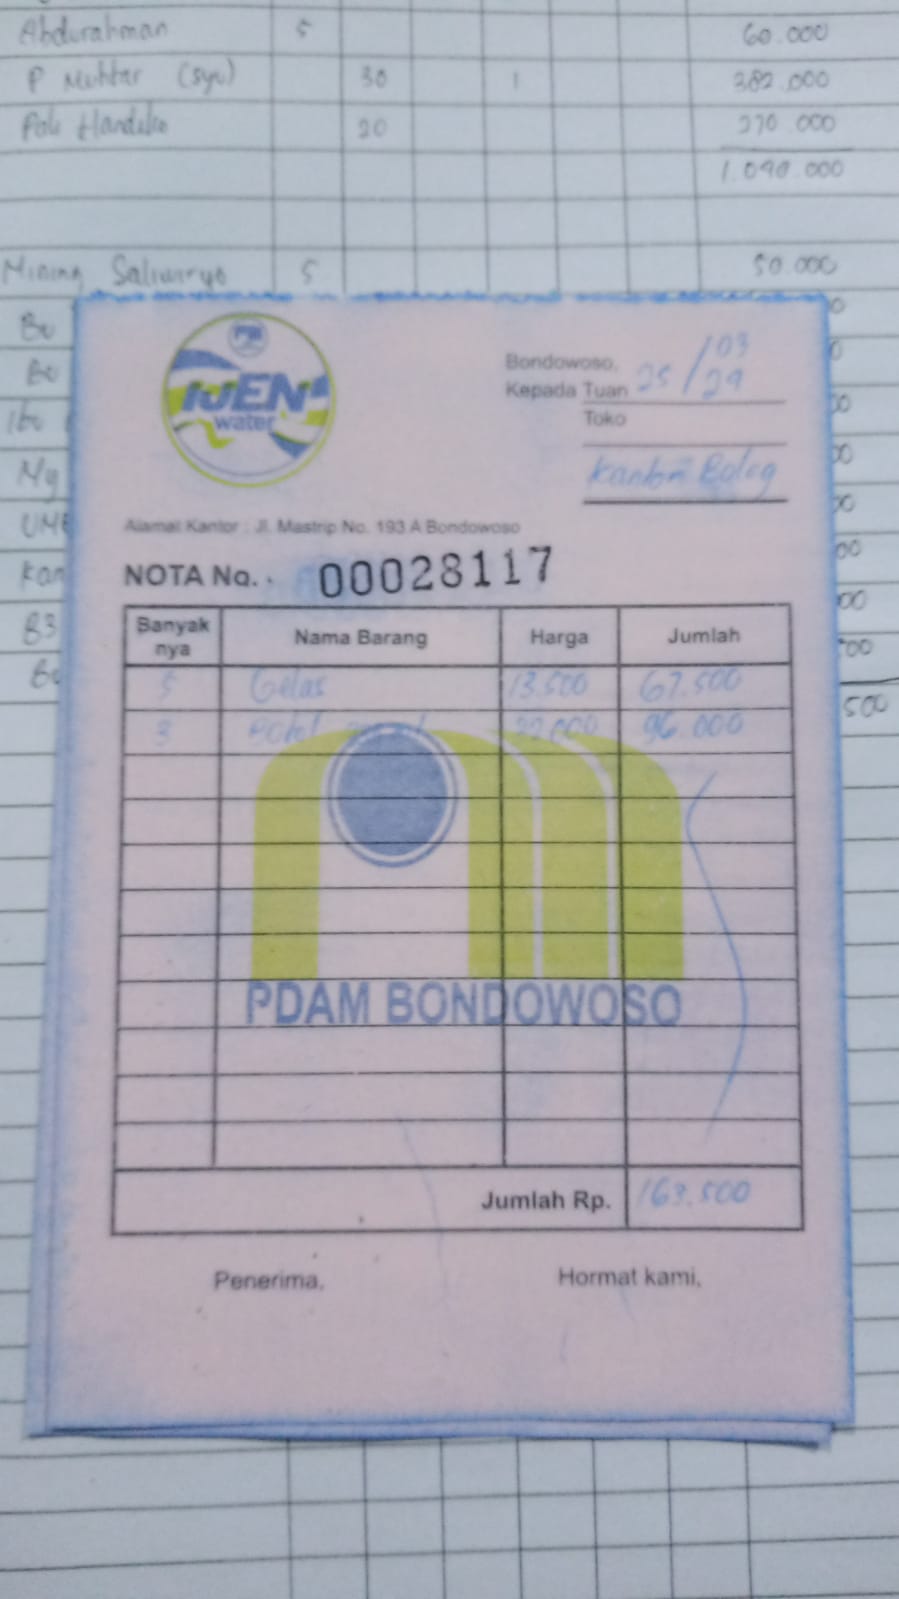 Abdurahman 5 60.000
P Muhtar (syu) 30 1 382.000
Pak Handiko 20 270.000
1.090.000
Mining Saliwiryo 5 50.000
Bu
Ibu
Ny
UME
Kan
500
IJEN
water
Bondowoso, 25/03
Kepada Tuan 29
Toko
Kantor Bolog
Alamat Kantor : Jl. Mastrip No. 193 A Bondowoso
NOTA No. 00028117
Banyak nya Nama Barang Harga Jumlah
5 Gelas 13.500 67.500
3 Botol 32.000 96.000
PDAM BONDOWOSO
Jumlah Rp. 163.500
Penerima, Hormat kami,